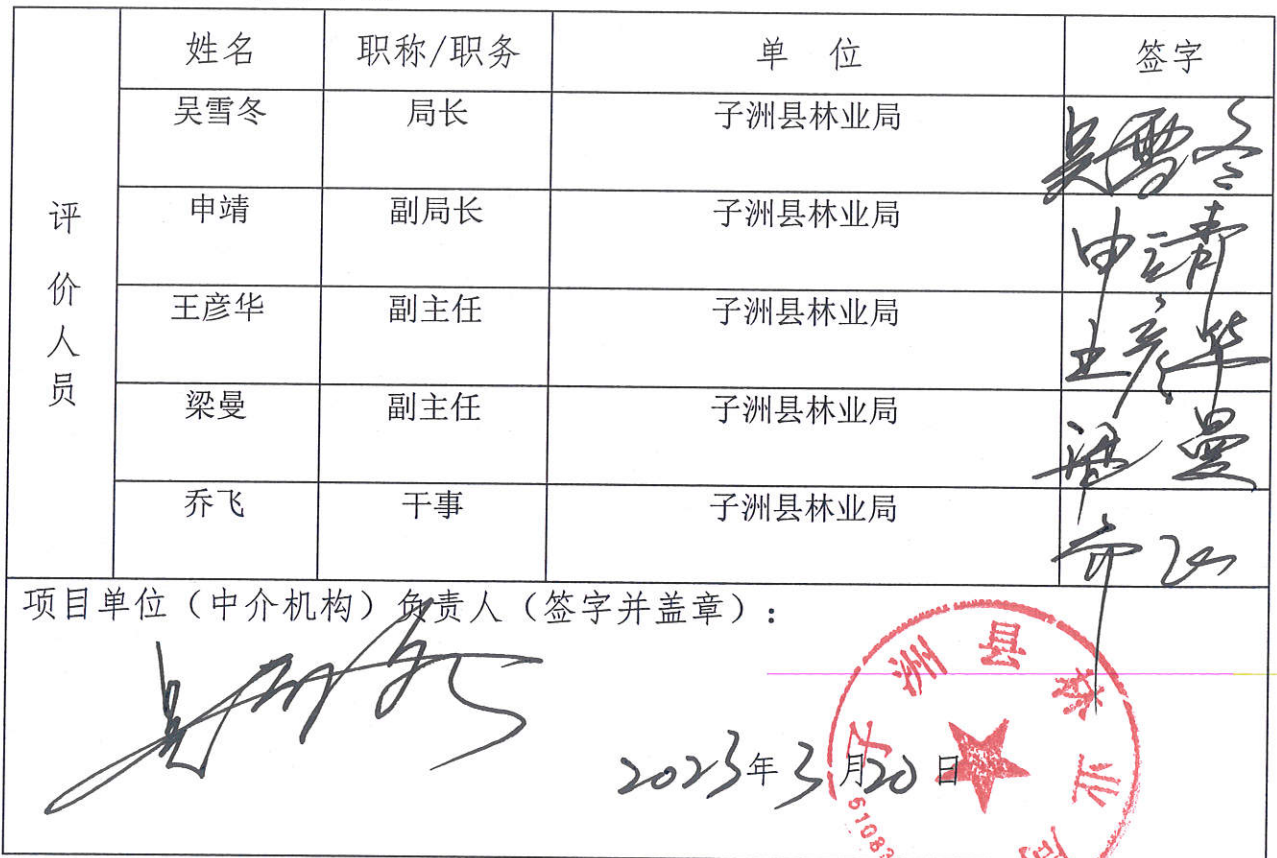 姓名 职称/职务 单 位 签字
评价人员
吴雪冬 局长 子洲县林业局 吴雪冬
申靖 副局长 子洲县林业局 申靖
王彦华 副主任 子洲县林业局 王彦华
梁曼 副主任 子洲县林业局 梁曼
乔飞 干事 子洲县林业局 乔飞
项目单位（中介机构）负责人（签字并盖章）：
2023年3月20日
子洲县林业局
61083